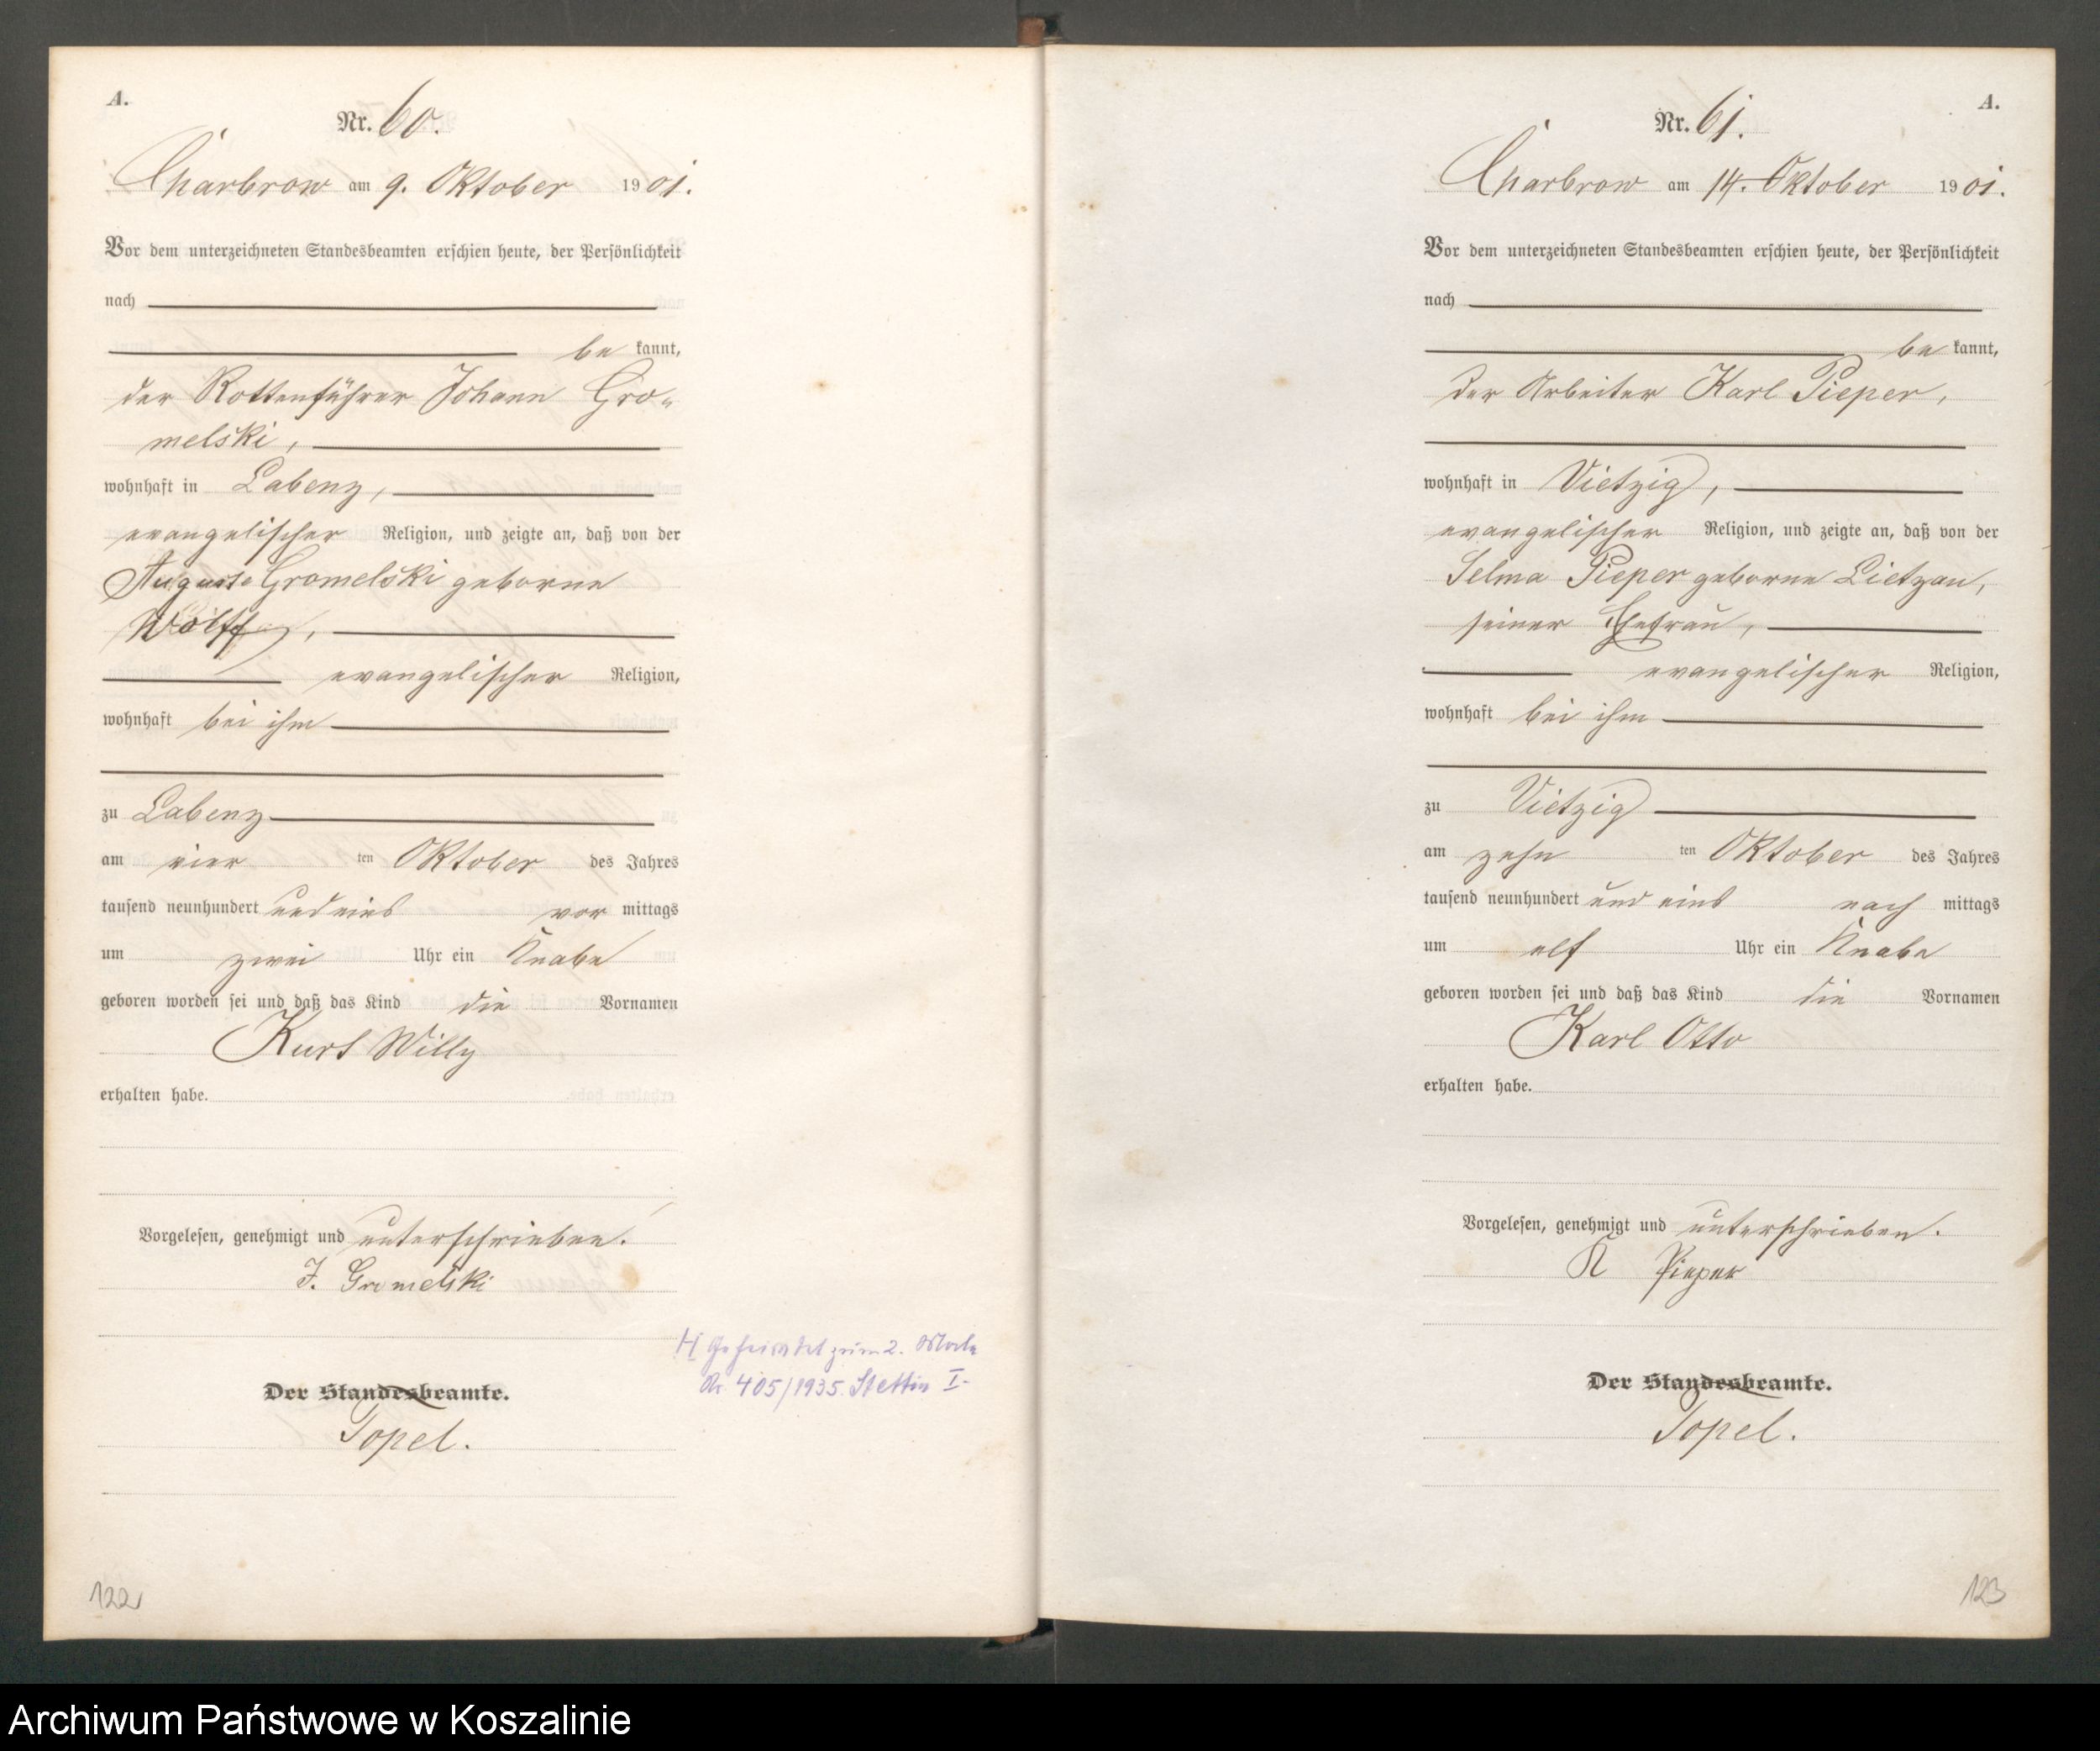 A.
Nr. 60.
Charbrow am 9. Oktober 1901.
Vor dem unterzeichneten Standesbeamten erschien heute, der Persönlichkeit
nach
be kannt,
der Rottenführer Johann Gro-
melski,
wohnhaft in Labenz,
evangelischer Religion, und zeigte an, daß von der
Auguste Gromelski geborne
Wolff,
evangelischer Religion,
wohnhaft bei ihm
zu Labenz
am vier ten Oktober des Jahres
tausend neunhundert und eins vor mittags
um zwei Uhr ein Knabe
geboren worden sei und daß das Kind die Vornamen
Kurt Willy
erhalten habe.
Vorgelesen, genehmigt und unterschrieben.
J. Gromelski
H Geheiratet zum 2. Male
Nr 405/1935. Stettin I-
Der Standesbeamte.
Topel.
122
A.
Nr. 61.
Charbrow am 14. Oktober 1901.
Vor dem unterzeichneten Standesbeamten erschien heute, der Persönlichkeit
nach
be kannt,
der Arbeiter Karl Pieper,
wohnhaft in Vietzig,
evangelischer Religion, und zeigte an, daß von der
Selma Pieper geborne Lietzau,
seiner Ehefrau,
evangelischer Religion,
wohnhaft bei ihm
zu Vietzig
am zehn ten Oktober des Jahres
tausend neunhundert und eins nach mittags
um elf Uhr ein Knabe
geboren worden sei und daß das Kind die Vornamen
Karl Otto
erhalten habe.
Vorgelesen, genehmigt und unterschrieben.
K Pieper
Der Standesbeamte.
Topel.
123
Archiwum Państwowe w Koszalinie